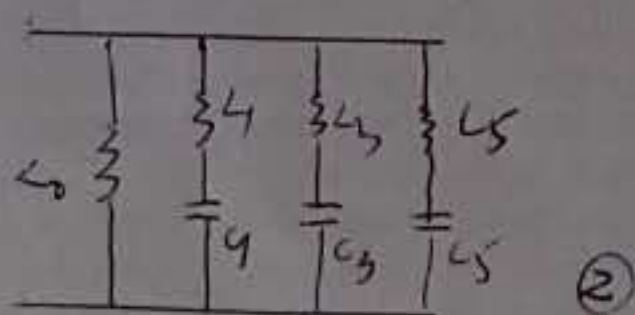 L0
L1
L3
L5
C1
C3
C5
2